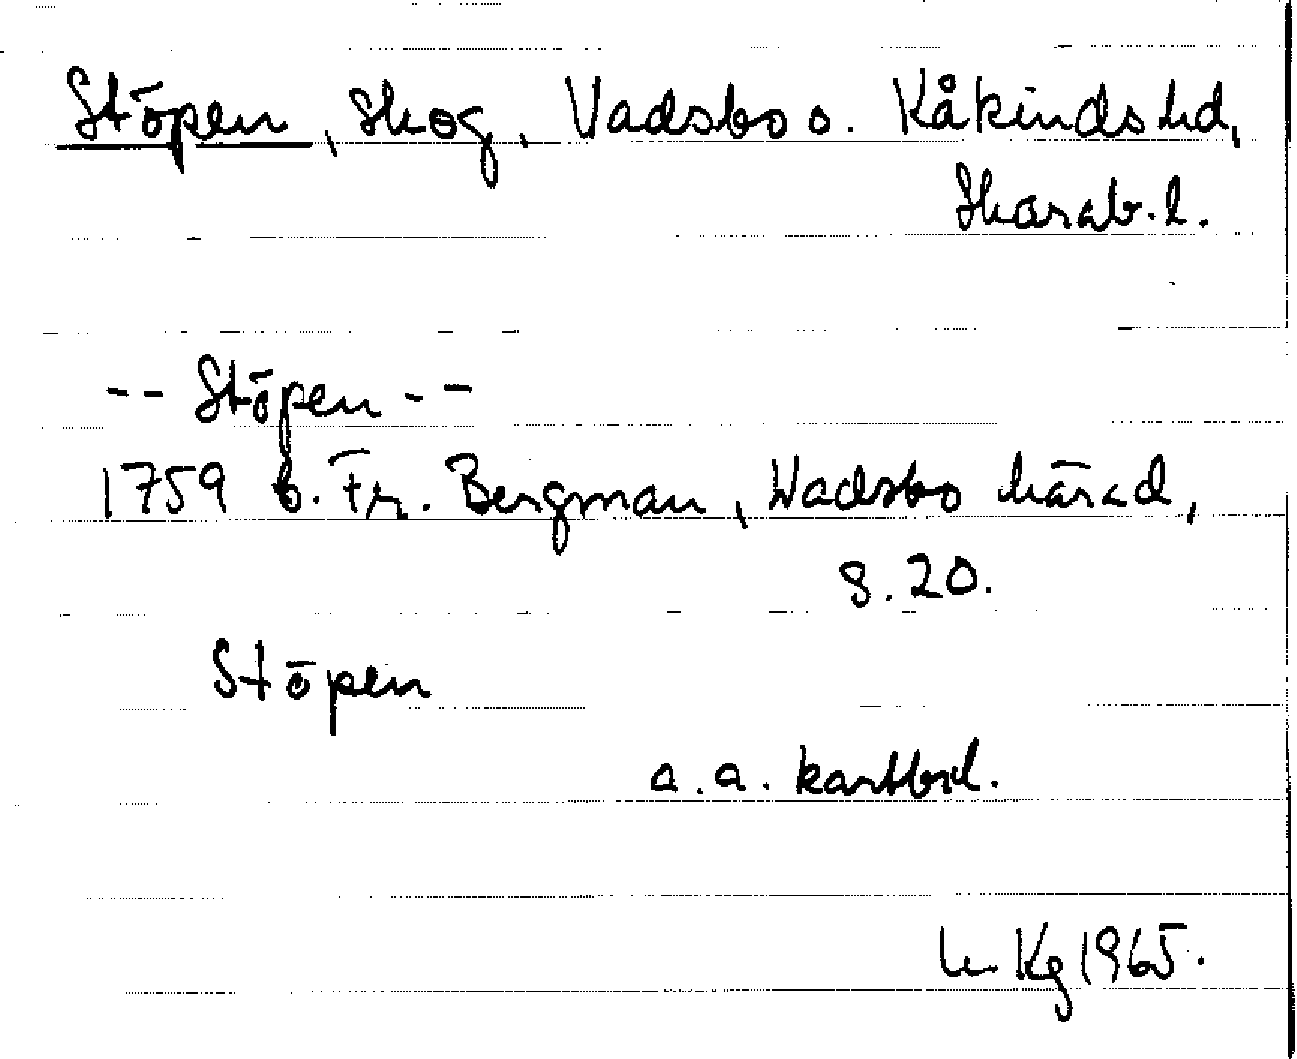 Stöpen, skog, Vadsbo o. Kåkinds hd,
Skarab. l.
-- Stöpen --
1759 b. Fr. Bergman, Wadsbo härad,
s. 20.
Stöpen
a.a. kartbil.
Kg 1965.